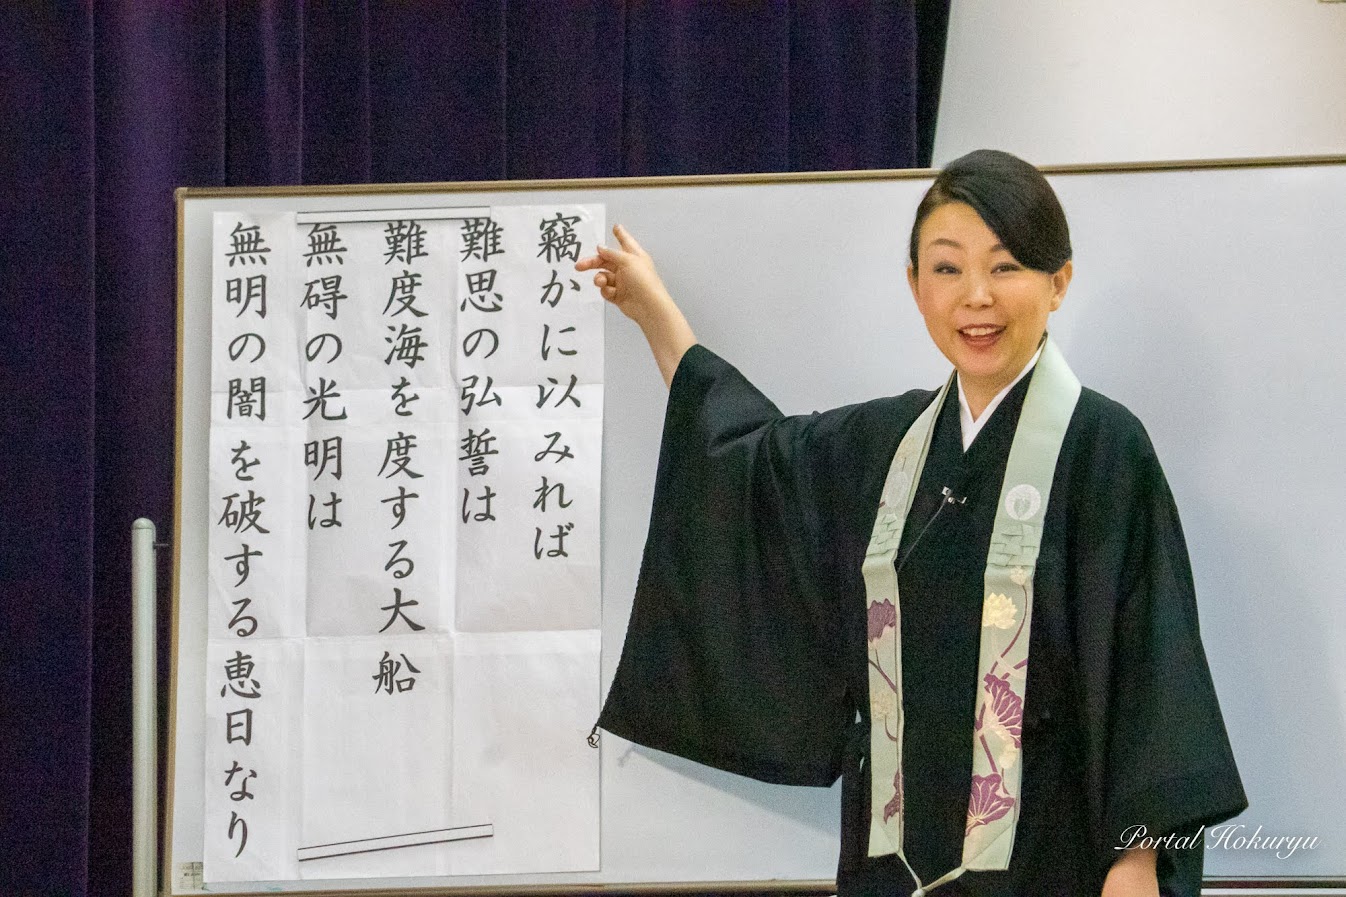 竊かに以みれば
難思の弘誓は
難度海を度する大船
無碍の光明は
無明の闇を破する恵日なり
Portal Hokuryu